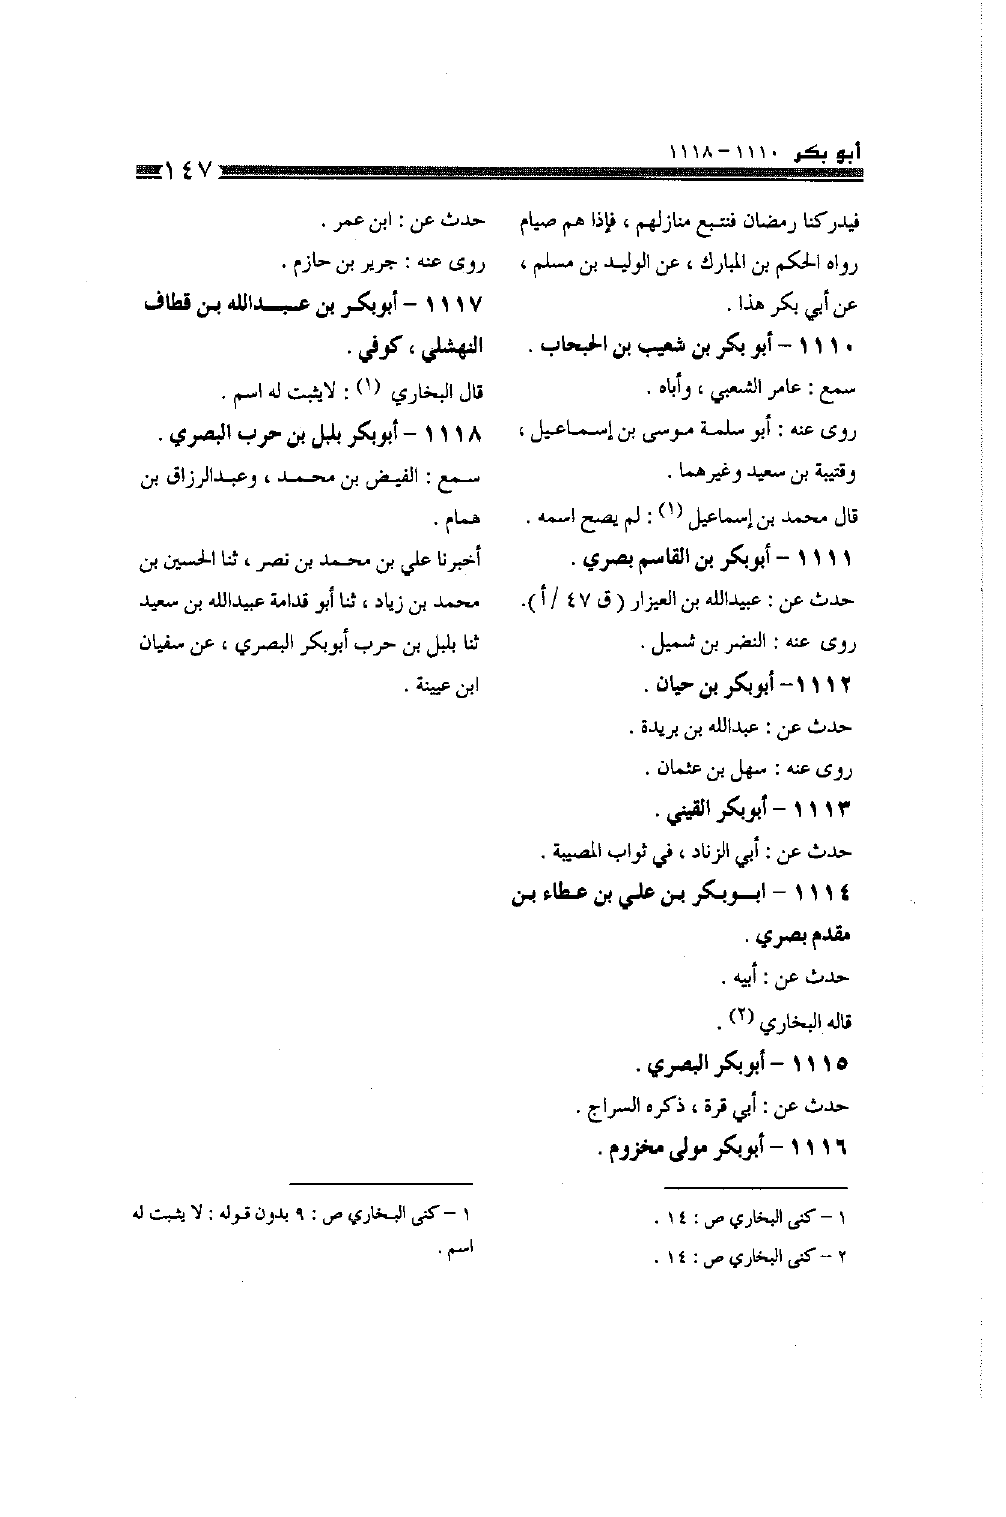 أبو بكر ١١١٠-١١١٨
١٤٧
فيدركنا رمضان فنتبع منازلهم ، فإذا هم صيام
رواه الحكم بن المبارك ، عن الوليد بن مسلم ،
عن أبي بكر هذا .
١١١٠ - أبو بكر بن شعيب بن الحبحاب .
سمع : عامر الشعبي ، وأباه .
روى عنه : أبو سلمة موسى بن إسماعيل ،
وقتيبة بن سعيد وغيرهما .
قال محمد بن إسماعيل (١) : لم يصح اسمه .
١١١١ - أبوبكر بن القاسم بصري .
حدث عن : عبيدالله بن العيزار ( ق ٤٧ /أ ).
روى عنه : النضر بن شميل .
١١١٢- أبوبكر بن حيان .
حدث عن : عبدالله بن بريدة .
روى عنه : سهل بن عثمان .
١١١٣ - أبوبكر القيني .
حدث عن : أبي الزناد ، في ثواب المصيبة .
١١١٤ - ابوبكر بن علي بن عطاء بن
مقدم بصري .
حدث عن : أبيه .
قاله البخاري (٢) .
١١١٥ - أبوبكر البصري .
حدث عن : أبي قرة ، ذكره السراج .
١١١٦ - أبوبكر مولى مخزوم .
١ - كنى البخاري ص : ١٤ .
٢ - كنى البخاري ص : ١٤ .
حدث عن : ابن عمر .
روى عنه : جرير بن حازم .
١١١٧ - أبوبكر بن عبدالله بن قطاف
النهشلي ، كوفي .
قال البخاري (١) : لايثبت له اسم .
١١١٨ - أبوبكر بلبل بن حرب البصري .
سمع : الفيض بن محمد ، وعبدالرزاق بن
همام .
أخبرنا علي بن محمد بن نصر ، ثنا الحسين بن
محمد بن زياد ، ثنا أبو قدامة عبيدالله بن سعيد
ثنا بلبل بن حرب أبوبكر البصري ، عن سفيان
ابن عيينة .
١ - كنى البخاري ص : ٩ بدون قوله : لا يثبت له
اسم .